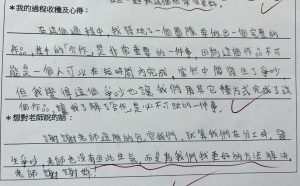 *我的過程收穫及心得:
在這個過程中,我發現了一個團隊要做出一個完美的
作品,其中的「合作」是非常重要的一件事,因為這個作品不可
能是一個人可以在短時間內完成,當然中間發生了爭吵
但我覺得這個爭吵也讓我們用其它種方式完成了這
個作品,讓我了解了合作是必不可少的一件事。
*想對老師說的話:
謝謝老師這麼的包容我們,就算我們在分工時,發
生爭吵,老師也沒有因此生氣,而是為我們找更好的方法解決,
老師謝謝妳!